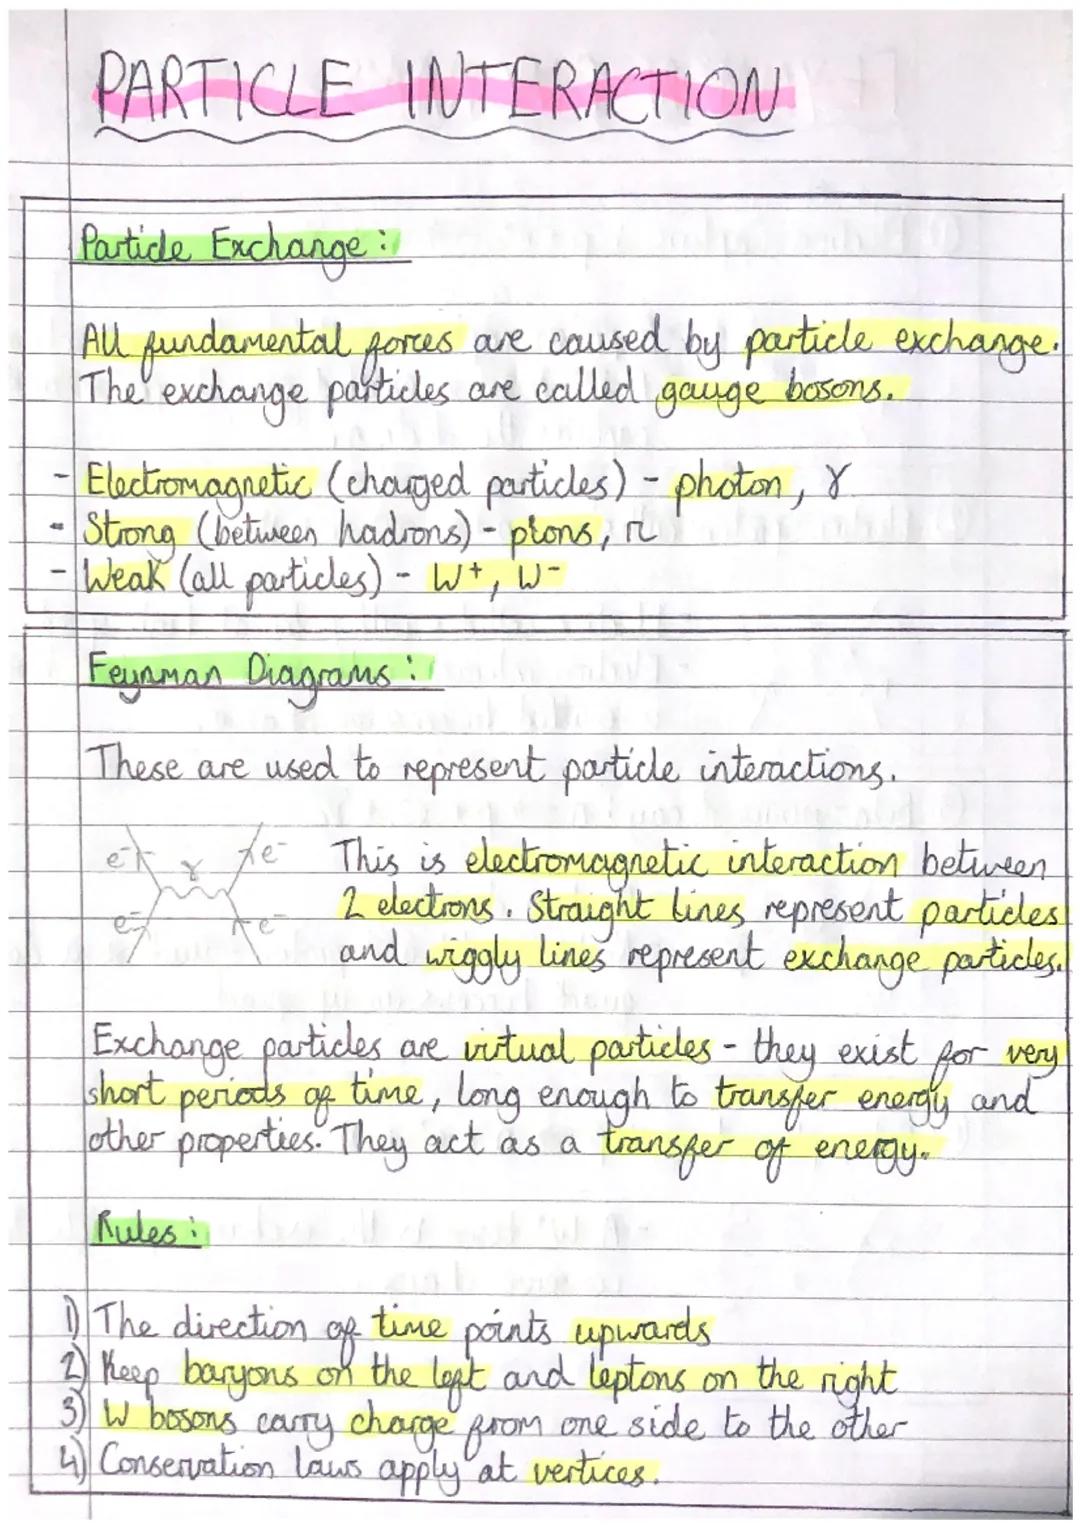 PARTICLE INTERACTION
Particle Exchange :
All fundamental forces are caused by particle exchange.
The exchange particles are called gauge bosons.
- Electromagnetic (charged particles) - photon, γ
- Strong (between hadrons) - pions, π
- Weak (all particles) - W+, W-
Feynman Diagrams :
These are used to represent particle interactions.
e- γ e-
e- e-
This is electromagnetic interaction between
2 electrons. Straight lines represent particles
and wiggly lines represent exchange particles.
Exchange particles are virtual particles - they exist for very
short periods of time, long enough to transfer energy and
other properties. They act as a transfer of energy.
Rules :
1) The direction of time points upwards
2) Keep baryons on the left and leptons on the right
3) W bosons carry charge from one side to the other
4) Conservation laws apply at vertices.